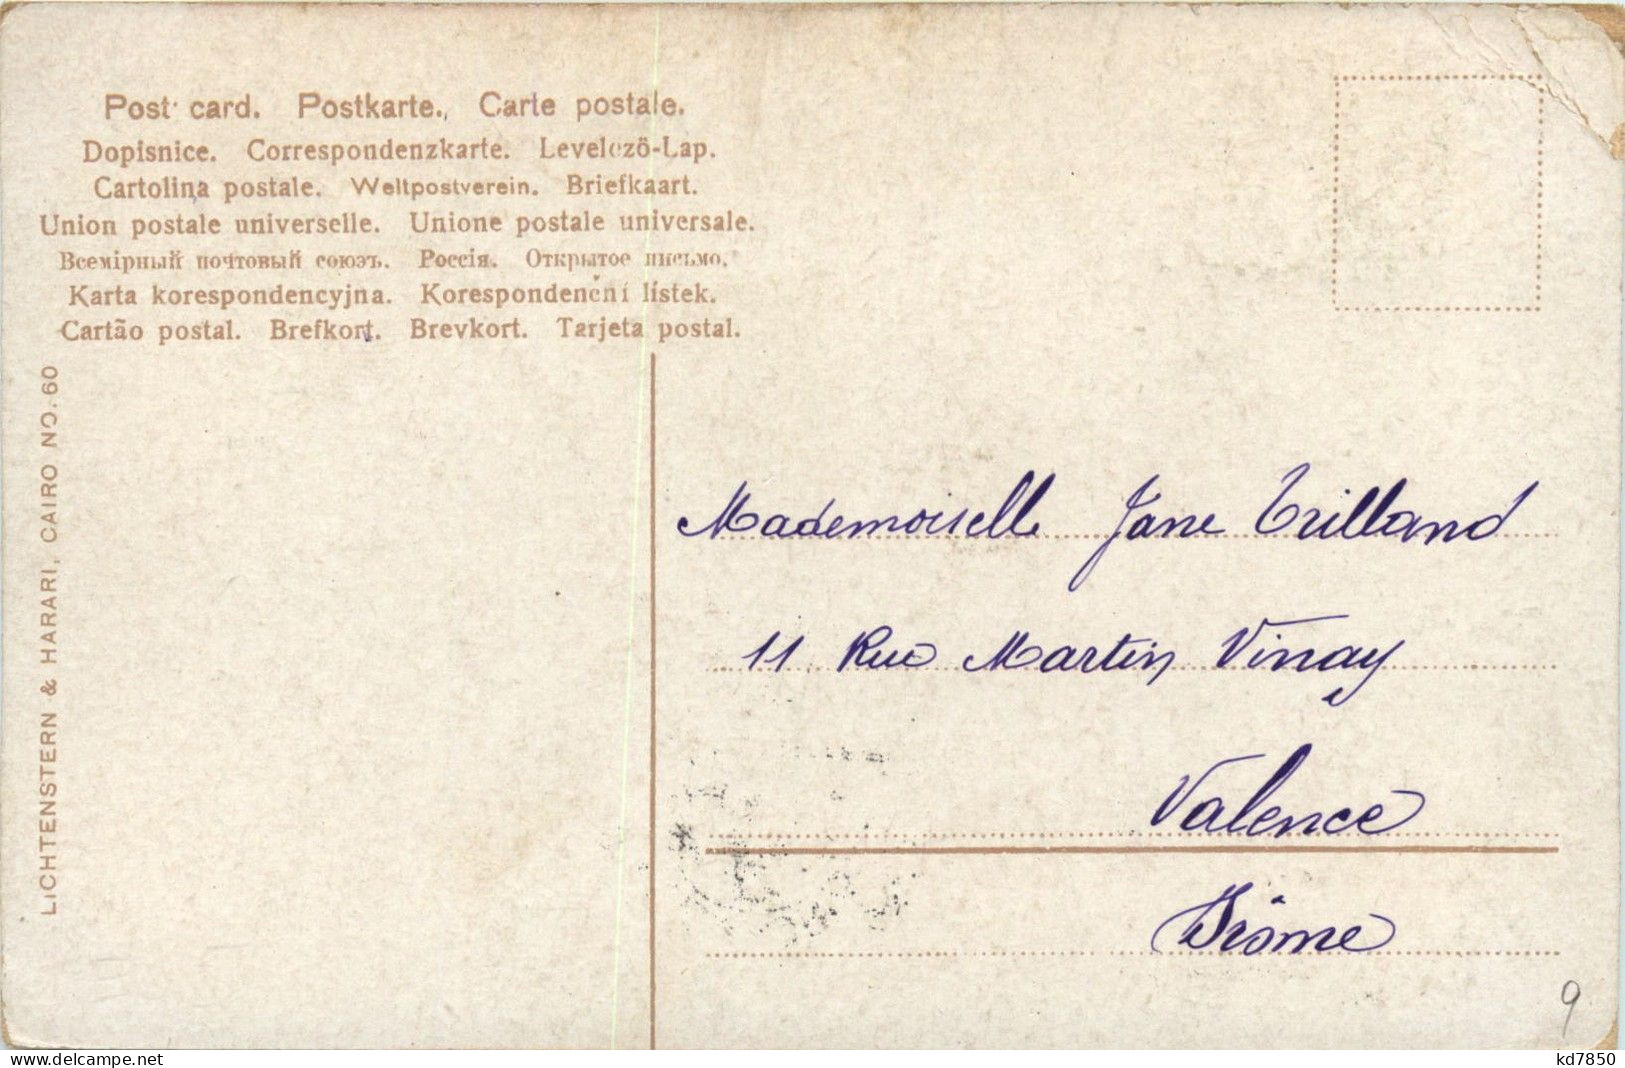 Post card. Postkarte., Carte postale.
Dopisnice. Correspondenzkarte. Levelező-Lap.
Cartolina postale. Weltpostverein. Briefkaart.
Union postale universelle. Unione postale universale.
Всемірный почтовый союзъ. Россія. Открытое письмо.
Karta korespondencyjna. Korespondenční lístek.
Cartão postal. Brefkort. Brevkort. Tarjeta postal.
LICHTENSTERN & HARARI, CAIRO NO. 60
Mademoiselle Jane Trilland
11 Rue Martin Vinay
Valence
Drôme
9
www.delcampe.net
kd7850